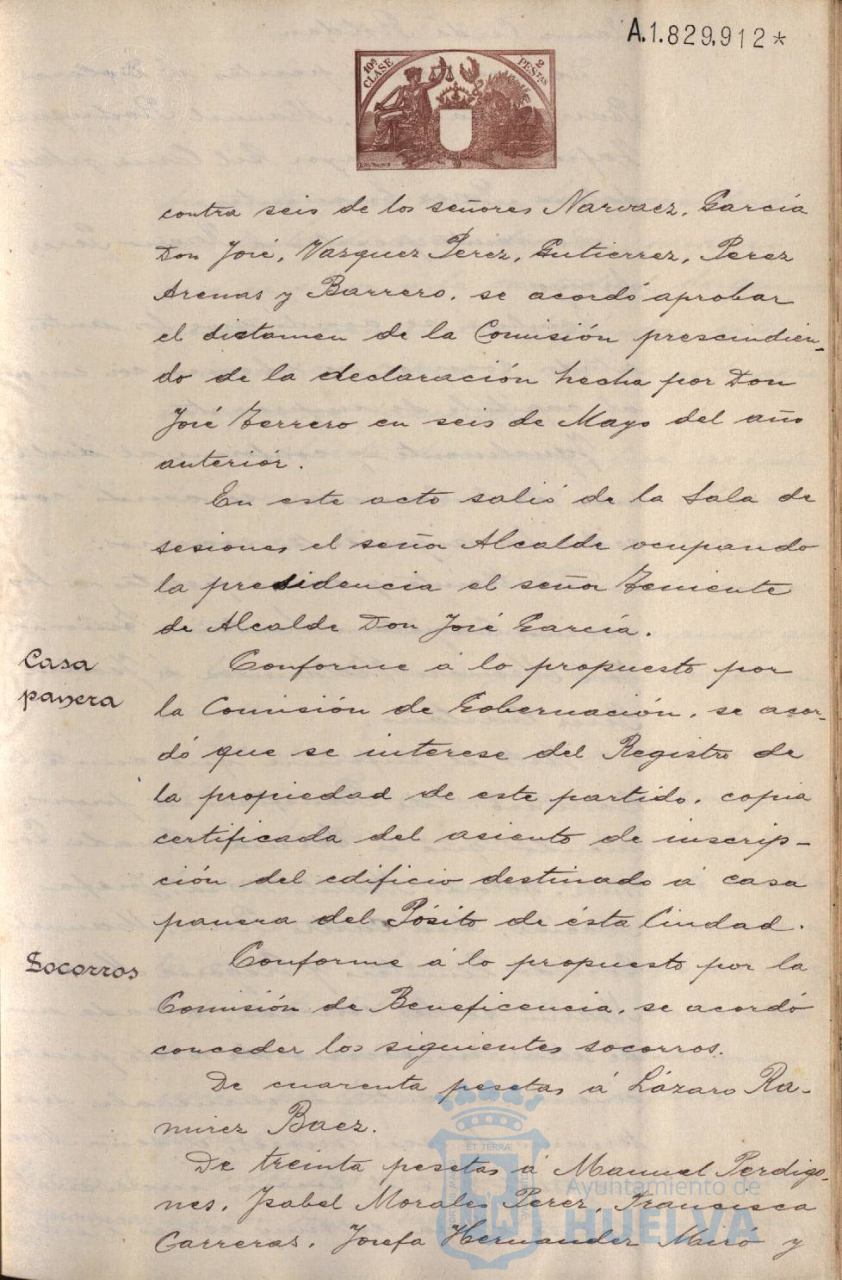 A.1.829.912*
10ª CLASE
2 PESTAS
contra seis de los señores Narvaez, García
Don José, Vazquez Perez, Gutierrez, Perez
Arenas y Barrero, se acordó aprobar
el dictamen de la Comisión prescindien-
do de la declaración hecha por Don
José Ferrero en seis de Mayo del año
anterior.
En este acto salió de la Sala de
sesiones el señor Alcalde ocupando
la presidencia el señor Teniente
de Alcalde Don José García.
Casa
panera
Conforme á lo propuesto por
la Comisión de Gobernación, se acor-
dó que se interese del Registro de
la propiedad de este partido, copia
certificada del asiento de inscrip-
ción del edificio destinado á casa
panera del Pósito de ésta Ciudad.
Socorros
Conforme á lo propuesto por la
Comisión de Beneficencia, se acordó
conceder los siguientes socorros.
De cuarenta pesetas á Lázaro Ra-
mirez Baez.
De treinta pesetas á Manuel Perdigo-
nes, Isabel Morales Perez, Francisca
Carreras, Josefa Hernandez Miró y
ET TERRÆ
Ayuntamiento de
HUELVA